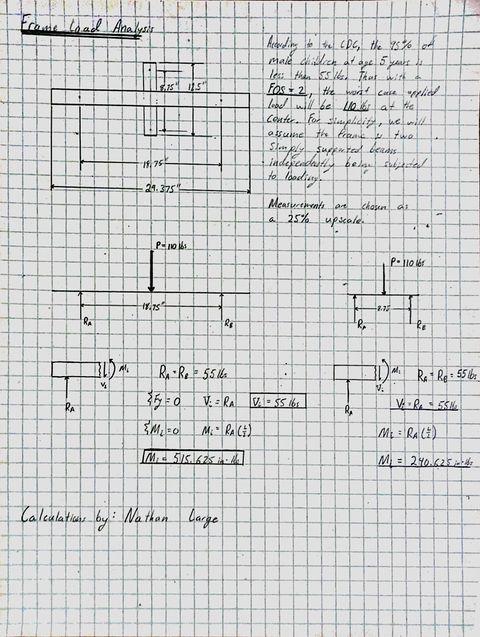 Frame Load Analysis
According to the CDC, the 95% of
male children at age 5 years is
less than 55 lbs. Thus with a
FOS = 2, the worst case applied
load will be 110 lbs at the
center. For simplicity, we will
assume the frame is two
simply supported beams
independently being subjected
to loading.
Measurements are chosen as
a 25% upscale.
8.75" 12.5"
18.75"
29.375"
P=110 lbs
18.75"
RA RB
P=110 lbs
8.75
RA RB
Mi
Vi
RA
RA = RB = 55 lbs
ΣFy = 0 Vi = RA Vi = 55 lbs
ΣMi = 0 Mi = RA(L/2)
Mi = 515.625 in·lbs
Mi
Vi
RA
RA = RB = 55 lbs
Vi = RA = 55 lbs
Mi = RA(L/2)
Mi = 240.625 in·lbs
Calculations by: Nathan Large